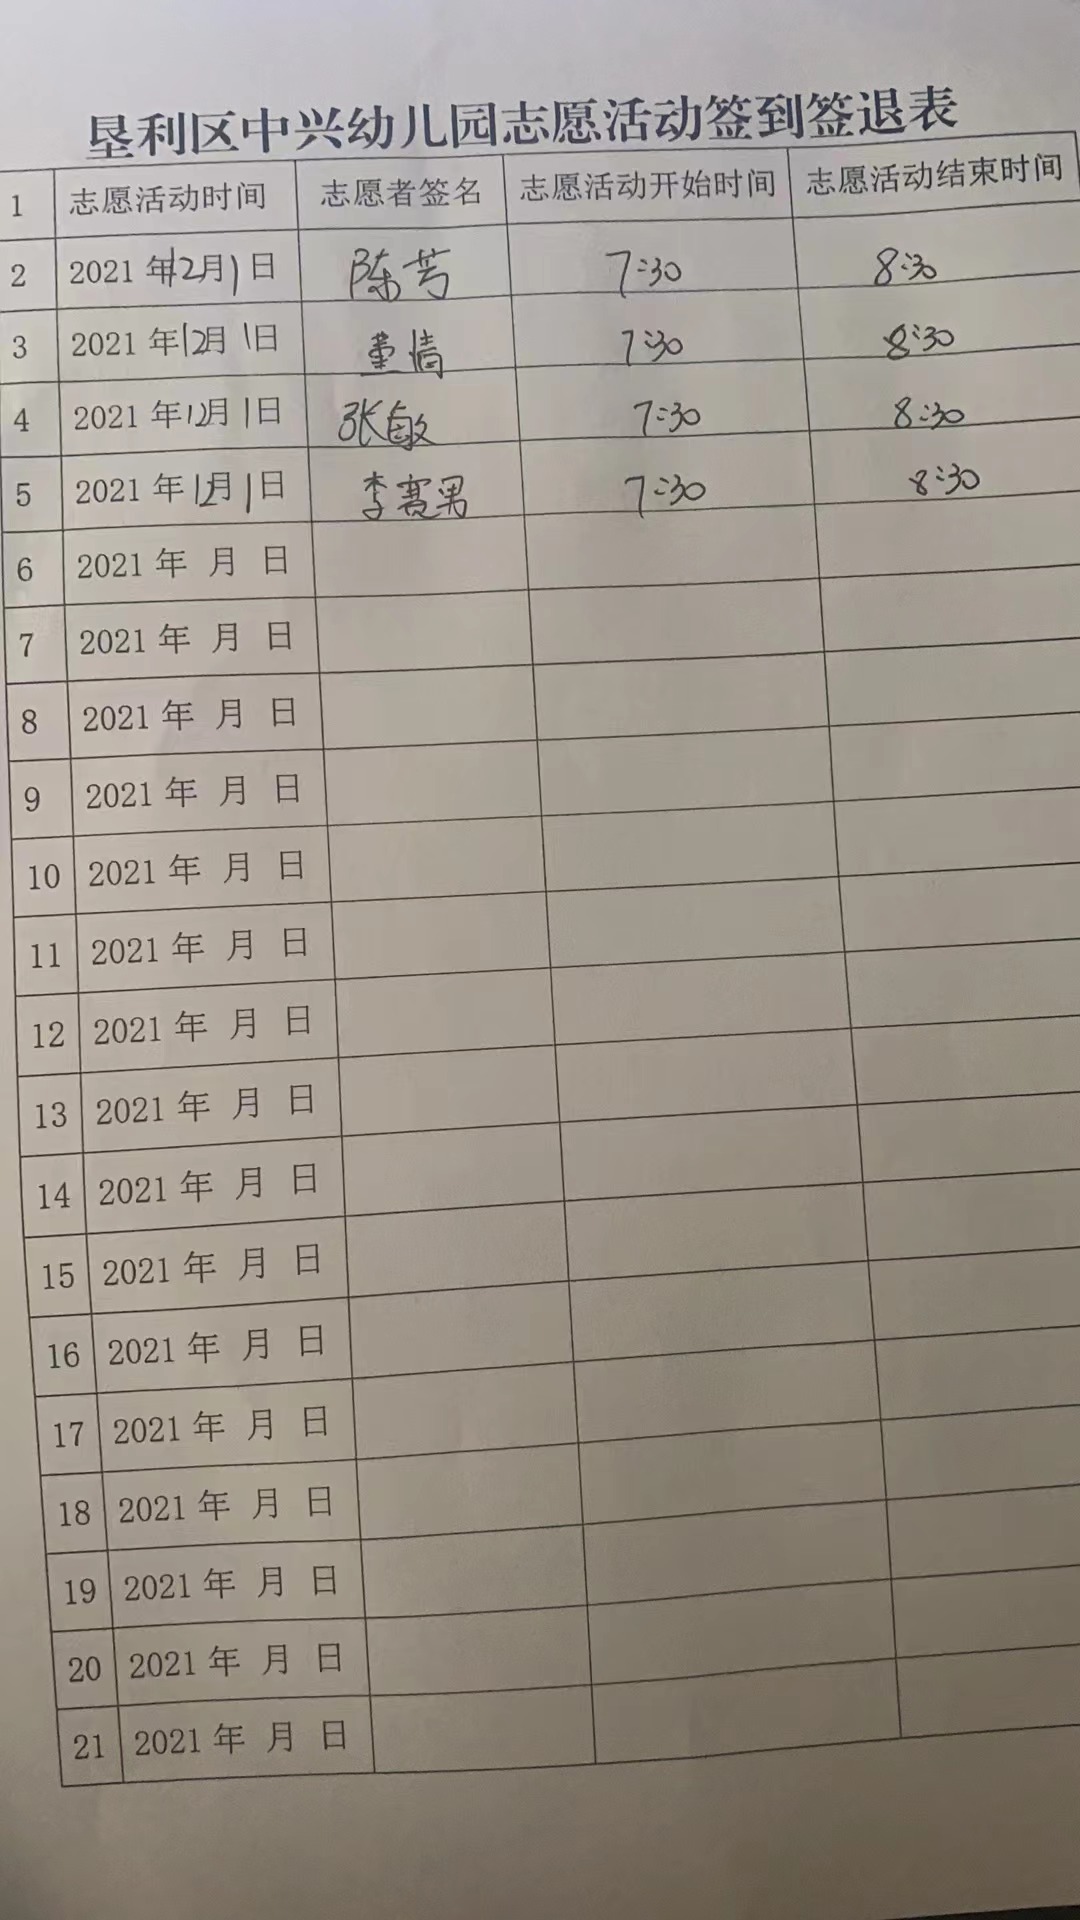 垦利区中兴幼儿园志愿活动签到签退表
1 志愿活动时间 志愿者签名 志愿活动开始时间 志愿活动结束时间
2 2021年12月1日 陈芳 7:30 8:30
3 2021年12月1日 董倩 7:30 8:30
4 2021年12月1日 张敏 7:30 8:30
5 2021年12月1日 李赛男 7:30 8:30
6 2021年 月 日
7 2021年 月 日
8 2021年 月 日
9 2021年 月 日
10 2021年 月 日
11 2021年 月 日
12 2021年 月 日
13 2021年 月 日
14 2021年 月 日
15 2021年 月 日
16 2021年 月 日
17 2021年 月 日
18 2021年 月 日
19 2021年 月 日
20 2021年 月 日
21 2021年 月 日